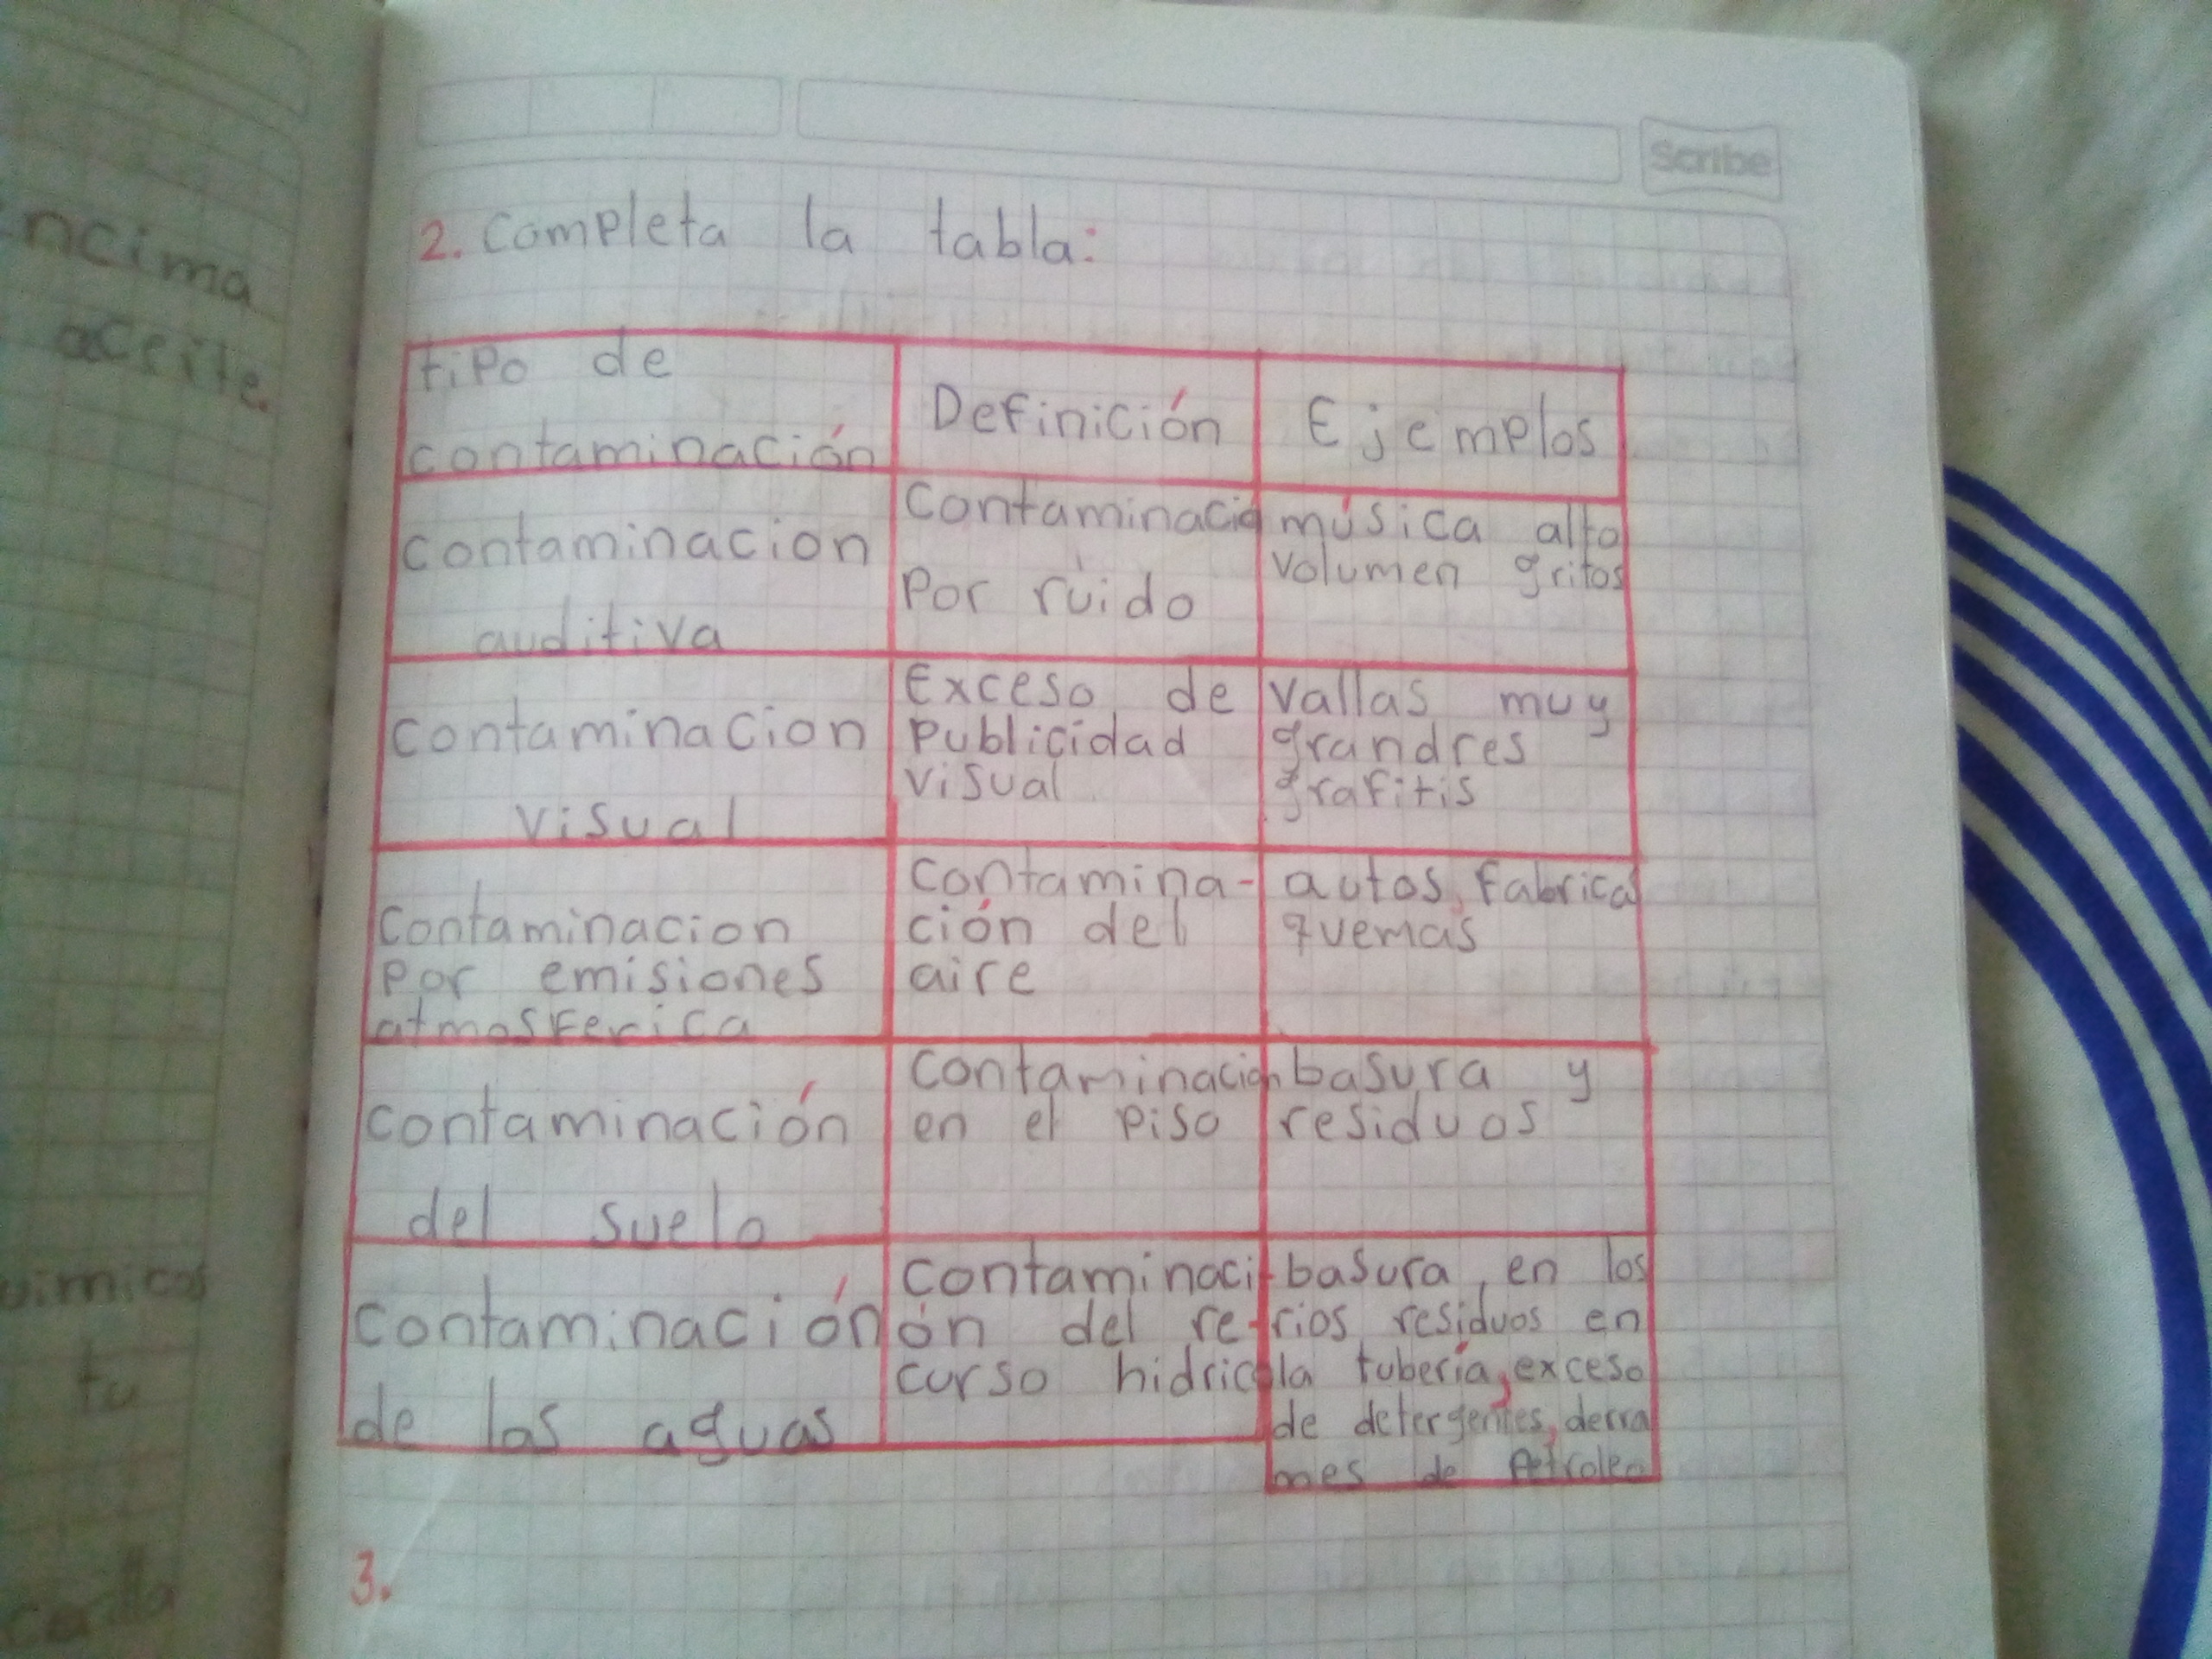 ncima
aceite.
uimicos
tu
Scribe
2. Completa la tabla:
tipo de
contaminación
Definición
Ejemplos
contaminacion
auditiva
Contaminacio
Por rúido
música alto
volumen gritos
contaminacion
visual
Exceso de
Publicidad
visual
vallas muy
grandres
grafitis
Contaminacion
por emisiones
atmosferica
contamina-
ción del
aire
autos, fabricas
quemas
contaminación
del suelo
contaminacion
en el piso
basura y
residuos
contaminación
de las aguas
contaminaci-
ón del re-
curso hidrico
basura, en los
rios, residuos en
la tubería, exceso
de detergentes, derra
mes de Petroleo
3.